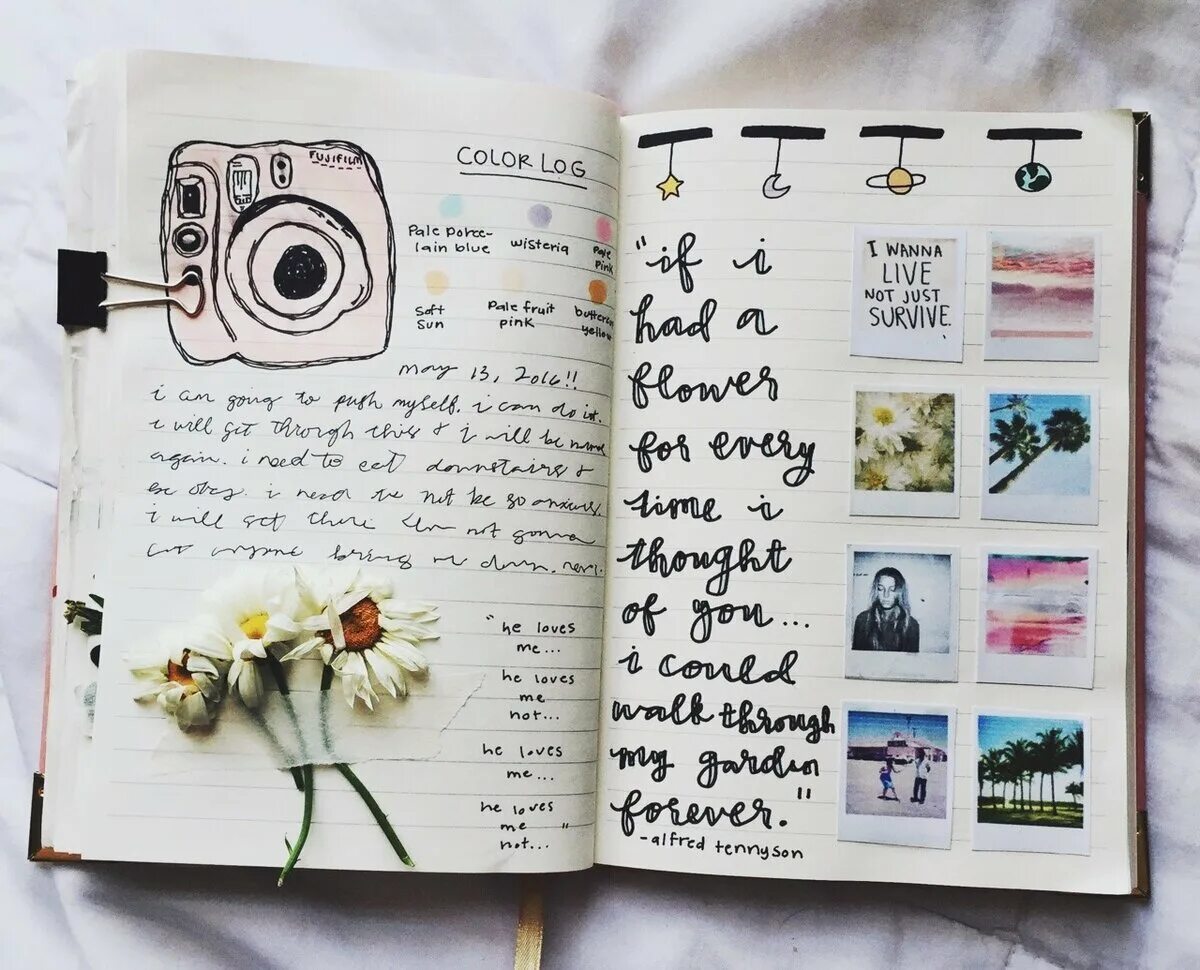 FUJIFILM
COLOR LOG
Pale porce-
lain blue
wisteria
Pale
Pink
Soft
Sun
Pale fruit
pink
yellow
may 13, 2016!!
i am going to push myself. i can do it.
i will get through this & i will be normal
again. i need to eat downstairs &
be okay. i need to not be so anxious.
i will get there & i'm not gonna
let anyone bring me down.
"he loves
me...
he loves
me
not...
he loves
me...
he loves
me
not..."
"if i
had a
flower
for every
time i
thought
of you...
i could
walk through
my garden
forever."
-alfred tennyson
I WANNA
LIVE
NOT JUST
SURVIVE.